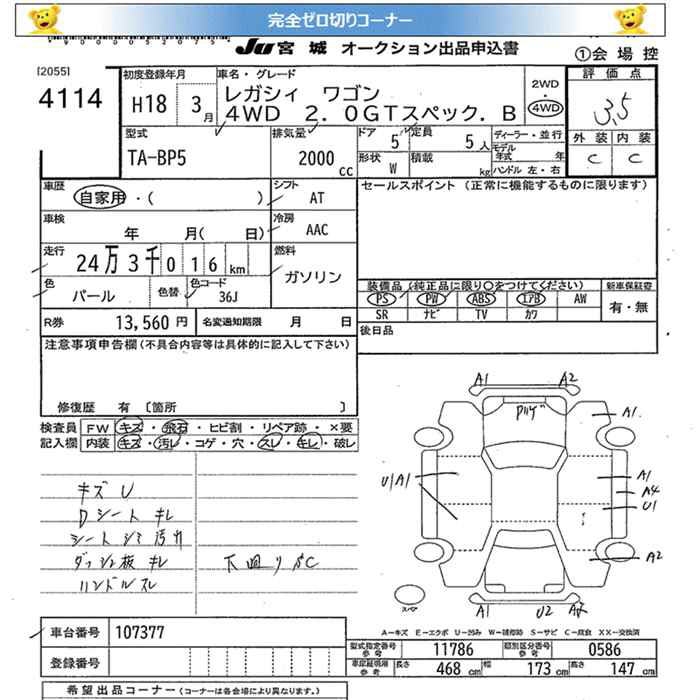 完全ゼロ切りコーナー
JU 宮城 オークション出品申込書
①会場控
[2055]
4114
初度登録年月
H18 3月
車名・グレード
レガシィ ワゴン
4WD 2.0GTスペック.B
2WD
4WD
評価点
3.5
外装 内装
C C
型式
TA-BP5
排気量
2000 cc
ドア 5
定員 5人
形状 W
積載 kg
ディーラー・並行
モデル年式 年
ハンドル 左・右
車歴
自家用・( )
シフト
AT
セールスポイント (正常に機能するものに限ります)
車検
年 月( 日)
冷房
AAC
走行
24万3千016km
燃料
ガソリン
色
パール
色替
色コード
36J
装備品 (純正品に限り○をつけてください)
新車保証書
PS PW ABS エアB AW
SR ナビ TV カワ
有・無
R券 13,560円
名変通知期限 月 日
後日品
注意事項申告欄(不具合内容等は具体的に記入して下さい)
修復歴 有 〔箇所 〕
検査員記入欄
FW キズ・飛石・ヒビ割・リペア跡・×要
内装 キズ・汚レ・コゲ・穴・スレ・キレ・破レ
キズ U
Dシート キレ
シート シミ 汚れ
ダッシュ板 キレ
ハンドル スレ
下回り C
A1 A2
A1
U1A1
A1
A4
U1
A2
A1 U2
スペア
A―キズ E―エクボ U―凹み W―補修跡 S―サビ C―腐食 XX―交換済
車台番号 107377
登録番号
型式指定番号 参考 11786
類別区分番号 参考 0586
車庫証明用 参考
長さ 468 cm
幅 173 cm
高さ 147 cm
希望出品コーナー (コーナーは各会場により異なります。)